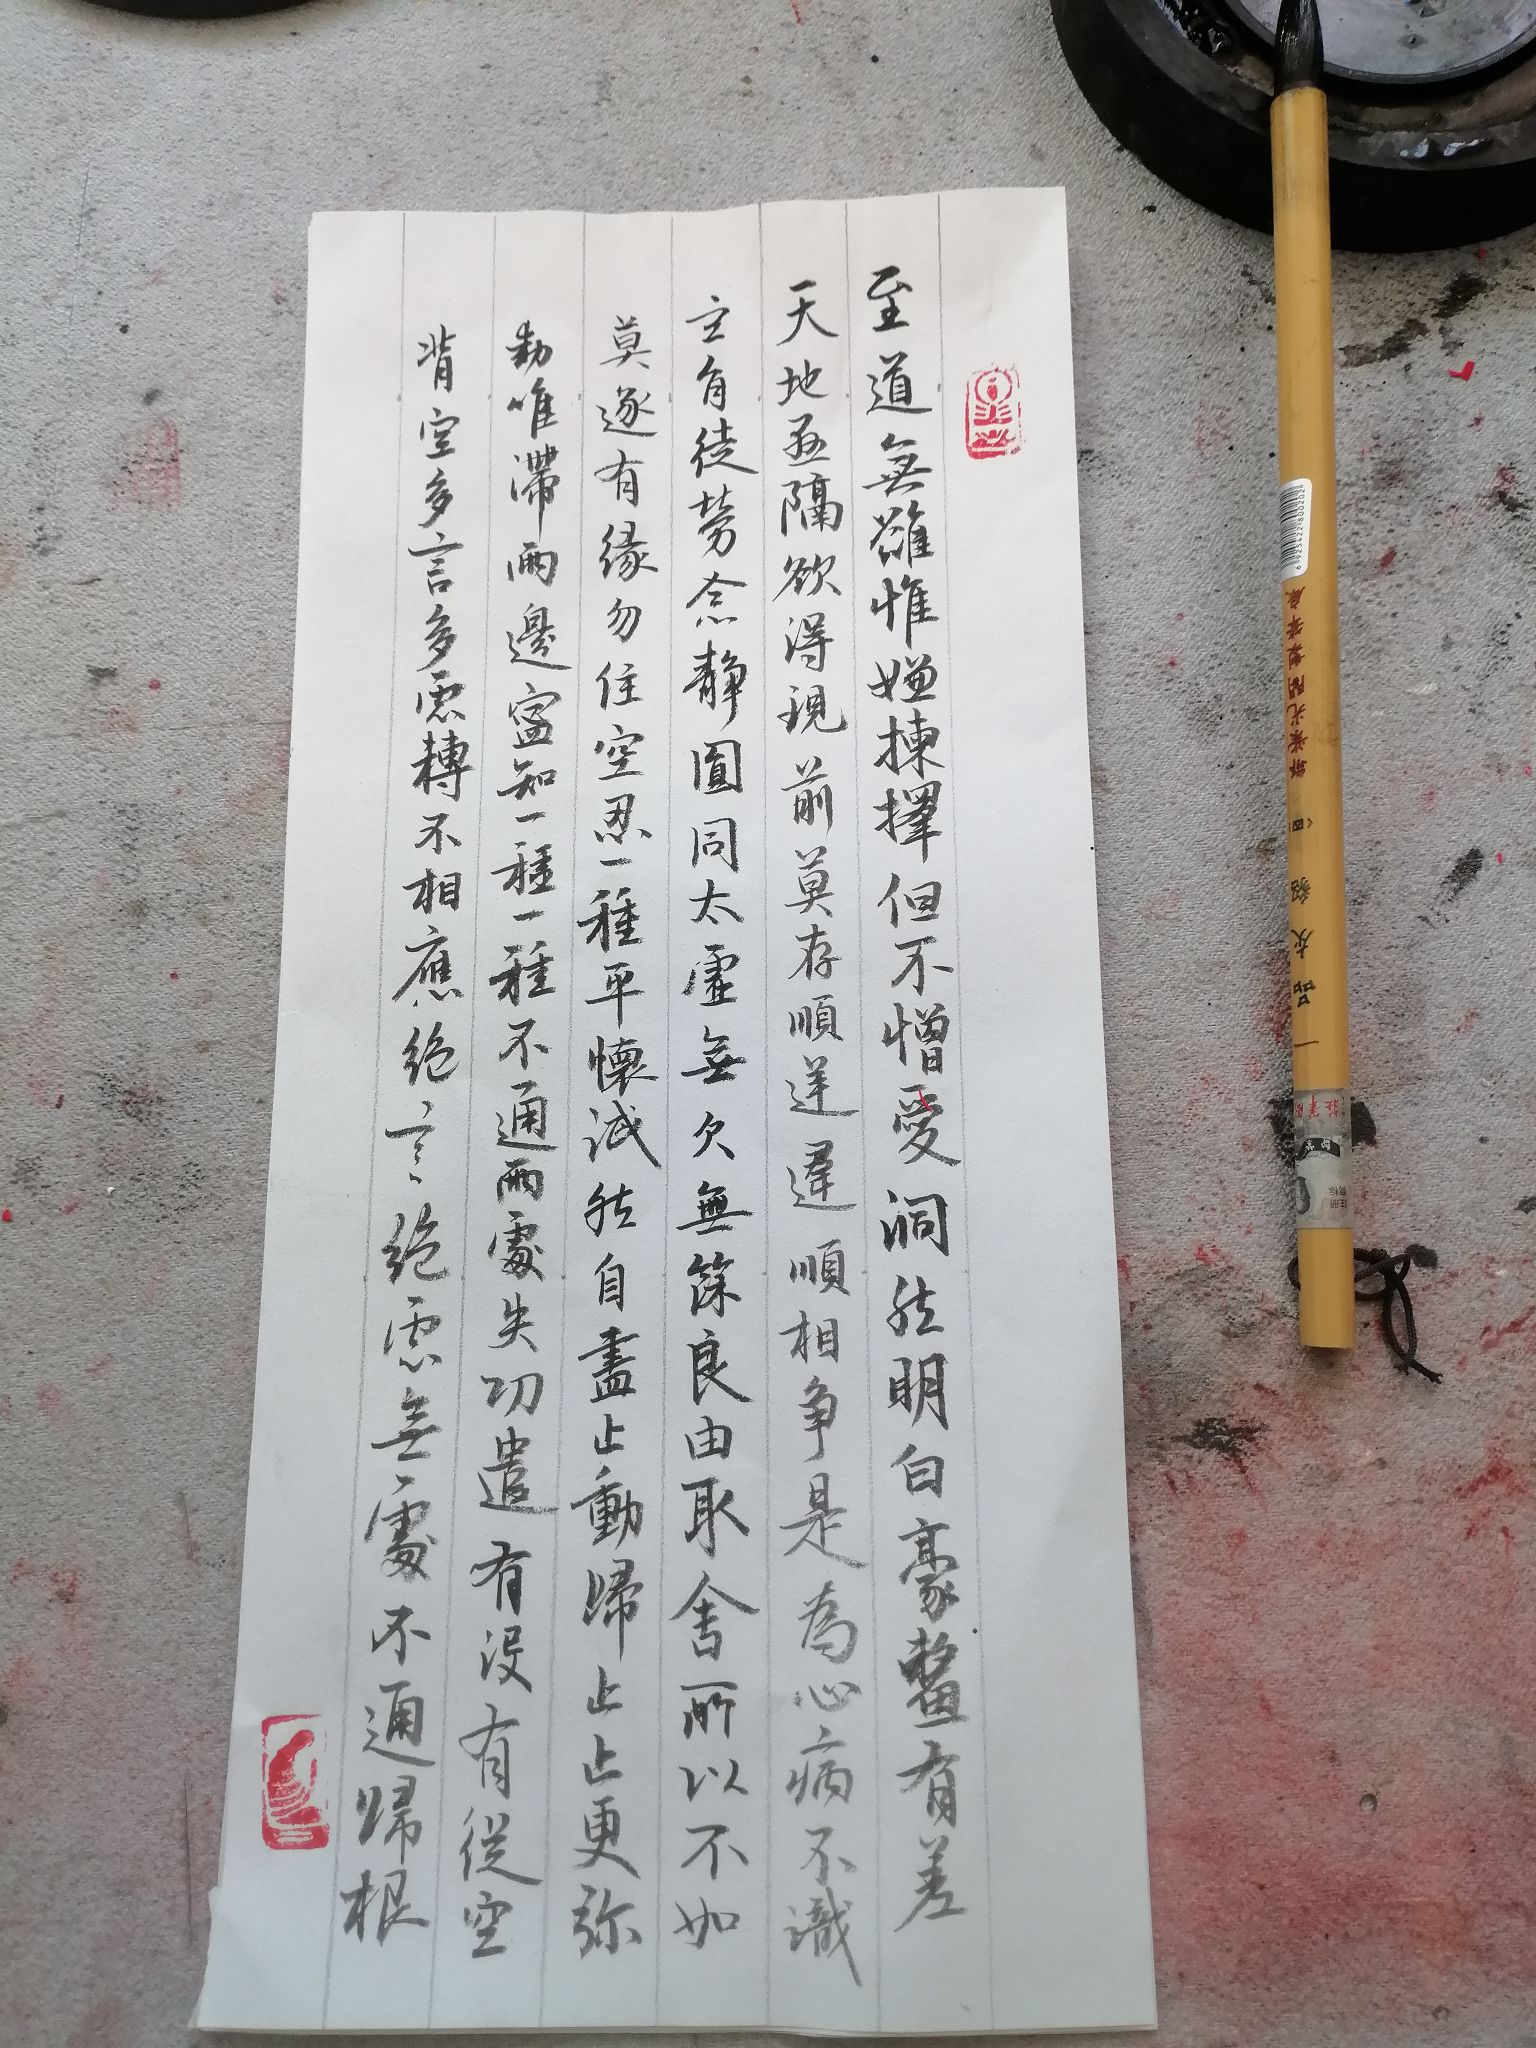 至道無難惟嫌揀擇但不憎愛洞然明白豪釐有差
天地懸隔欲得現前莫存順逆違順相争是為心病不識
玄旨徒勞念静圓同太虛無欠無餘良由取舍所以不如
莫逐有緣勿住空忍一種平懷泯然自盡止動歸止止更弥
動唯滯兩邊寧知一種一種不通兩處失功遣有没有從空
背空多言多慮轉不相應絶言絶慮無處不通歸根
6925422800202
一品灰貂 (四)